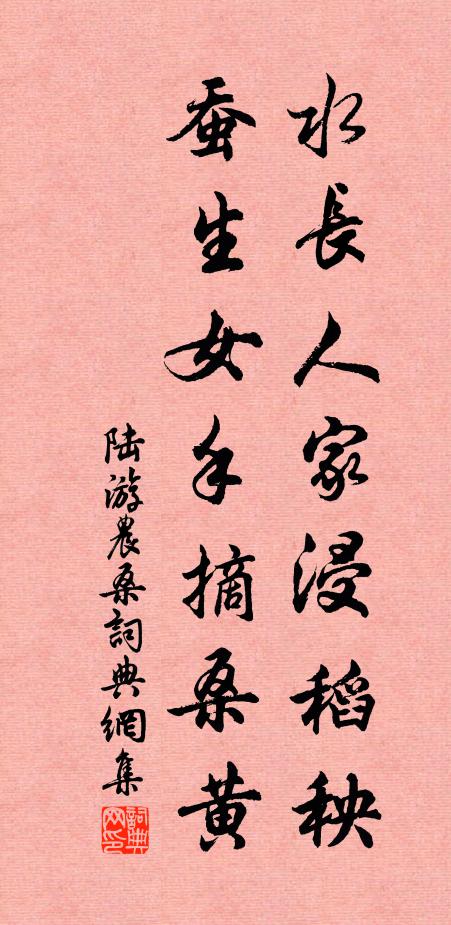 水長人家浸稻秧
蚕生女手摘桑黄
陆游農桑詞典網集
詞典网印